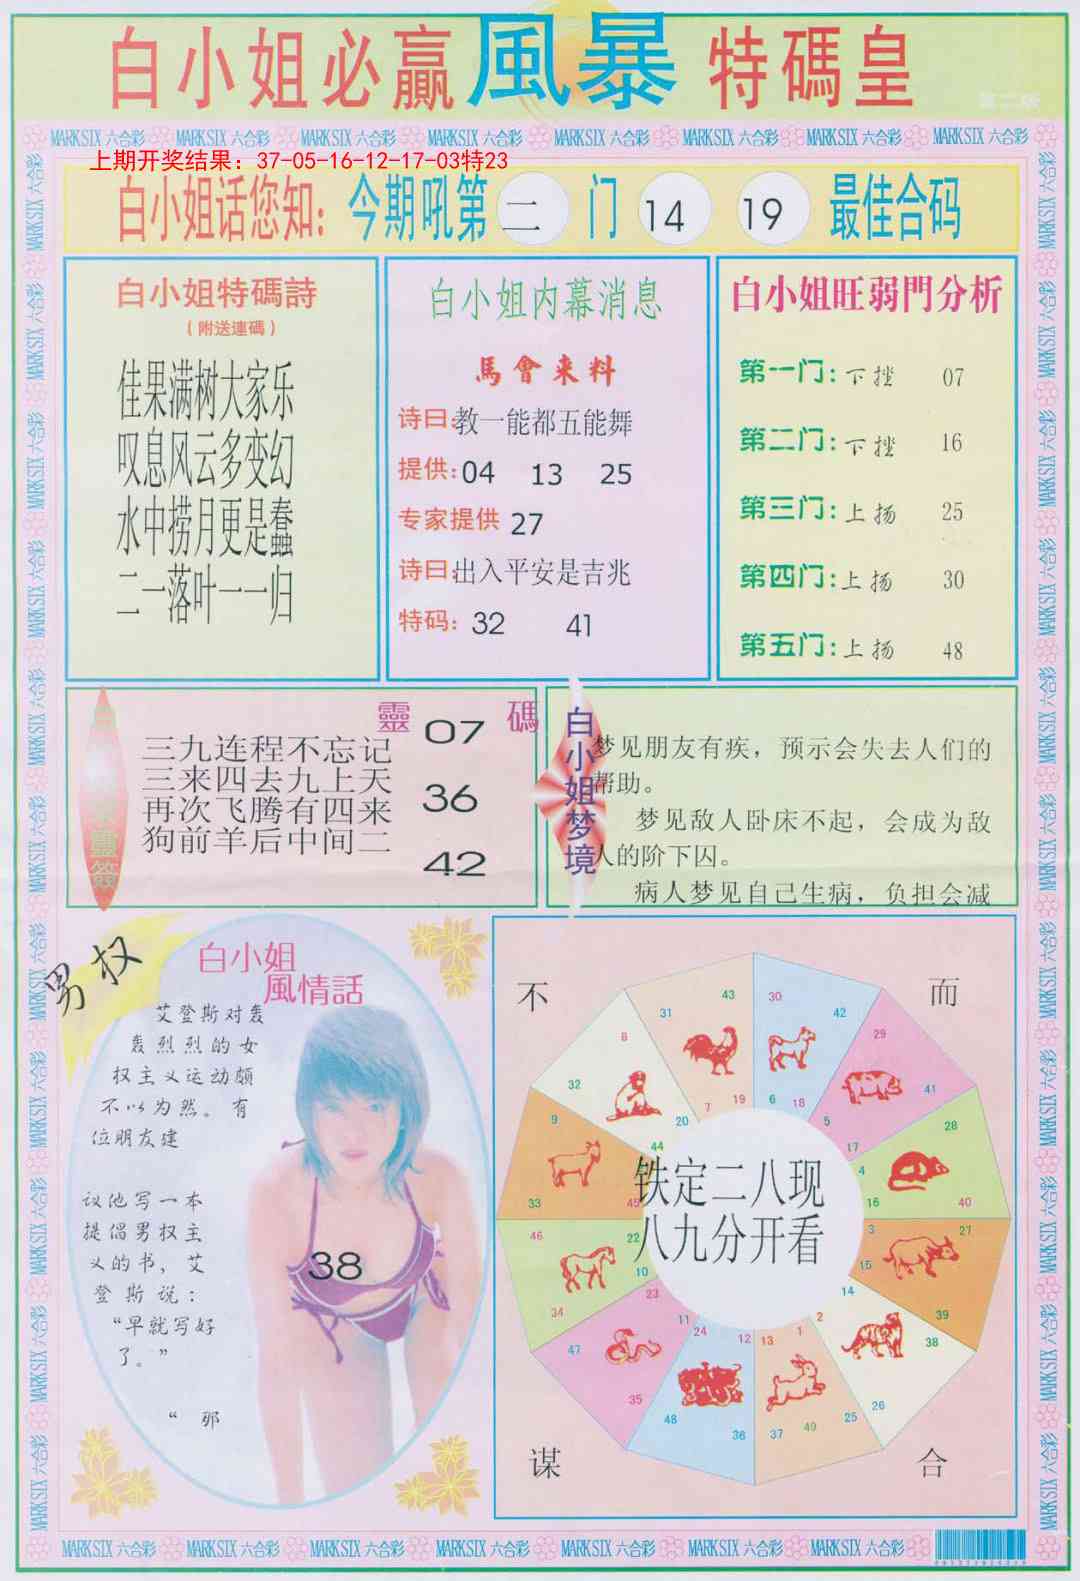 白小姐必贏風暴特碼皇
第二版
MARK SIX 六合彩 MARK SIX 六合彩 MARK SIX 六合彩 MARK SIX 六合彩 MARK SIX 六合彩 MARK SIX 六合彩 MARK SIX 六合彩 MARK SIX 六合彩
上期开奖结果：37-05-16-12-17-03特23
白小姐话您知：今期吼第二门 14 19 最佳合码
白小姐特碼詩
（附送連碼）
佳果满树大家乐
叹息风云多变幻
水中捞月更是蠢
二一落叶一一归
白小姐内幕消息
馬會来料
诗曰：教一能都五能舞
提供：04 13 25
专家提供 27
诗曰：出入平安是吉兆
特码：32 41
白小姐旺弱門分析
第一门：下挫 07
第二门：下挫 16
第三门：上扬 25
第四门：上扬 30
第五门：上扬 48
靈簽
三九连程不忘记
三来四去九上天
再次飞腾有四来
狗前羊后中间二
靈碼
07
36
42
白小姐梦境
梦见朋友有疾，预示会失去人们的
帮助。
梦见敌人卧床不起，会成为敌
人的阶下囚。
病人梦见自己生病，负担会减
男权
白小姐
風情話
艾登斯对轰
轰烈烈的女
权主义运动颇
不以为然。有
位朋友建
议他写一本
提倡男权主
义的书，艾
登斯说：
“早就写好
了。”
“邪
38
不 而
谋 合
43 31 7 19
30 42 6 18
29 41 5 17
28 40 4 16
27 39 3 15
14 2 38 26
1 13 25 37 49
12 24 36 48
11 23 35 47
46 34 22 10
9 33 45
8 32 20 44
铁定二八现
八九分开看
MARK SIX 六合彩 MARK SIX 六合彩 MARK SIX 六合彩 MARK SIX 六合彩 MARK SIX 六合彩 MARK SIX 六合彩 MARK SIX 六合彩